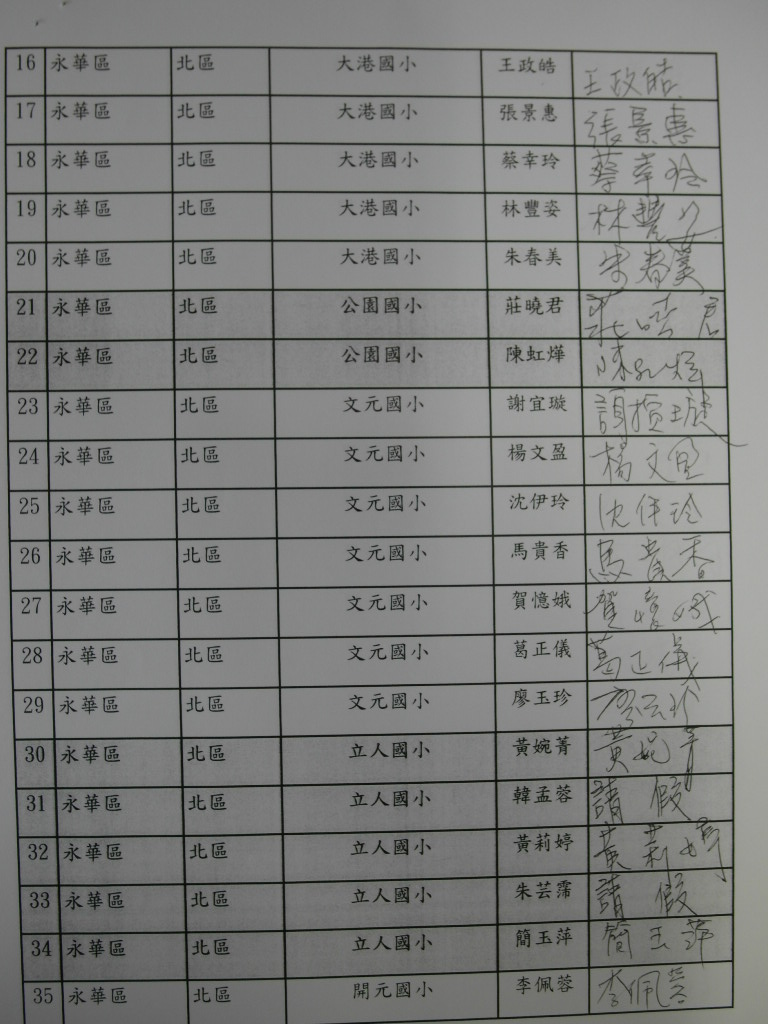 16 永華區 北區 大港國小 王政皓 王政皓
17 永華區 北區 大港國小 張景惠 張景惠
18 永華區 北區 大港國小 蔡幸玲 蔡幸玲
19 永華區 北區 大港國小 林豐姿 林豐姿
20 永華區 北區 大港國小 朱春美 朱春美
21 永華區 北區 公園國小 莊曉君 莊曉君
22 永華區 北區 公園國小 陳虹燁 陳虹燁
23 永華區 北區 文元國小 謝宜璇
24 永華區 北區 文元國小 楊文盈 楊文盈
25 永華區 北區 文元國小 沈伊玲 沈伊玲
26 永華區 北區 文元國小 馬貴香 馬貴香
27 永華區 北區 文元國小 賀憶娥 賀憶娥
28 永華區 北區 文元國小 葛正儀 葛正儀
29 永華區 北區 文元國小 廖玉珍 廖玉珍
30 永華區 北區 立人國小 黃婉菁 黃婉菁
31 永華區 北區 立人國小 韓孟蓉 請假
32 永華區 北區 立人國小 黃莉婷 黃莉婷
33 永華區 北區 立人國小 朱芸霈 請假
34 永華區 北區 立人國小 簡玉萍 簡玉萍
35 永華區 北區 開元國小 李佩蓉 李佩蓉